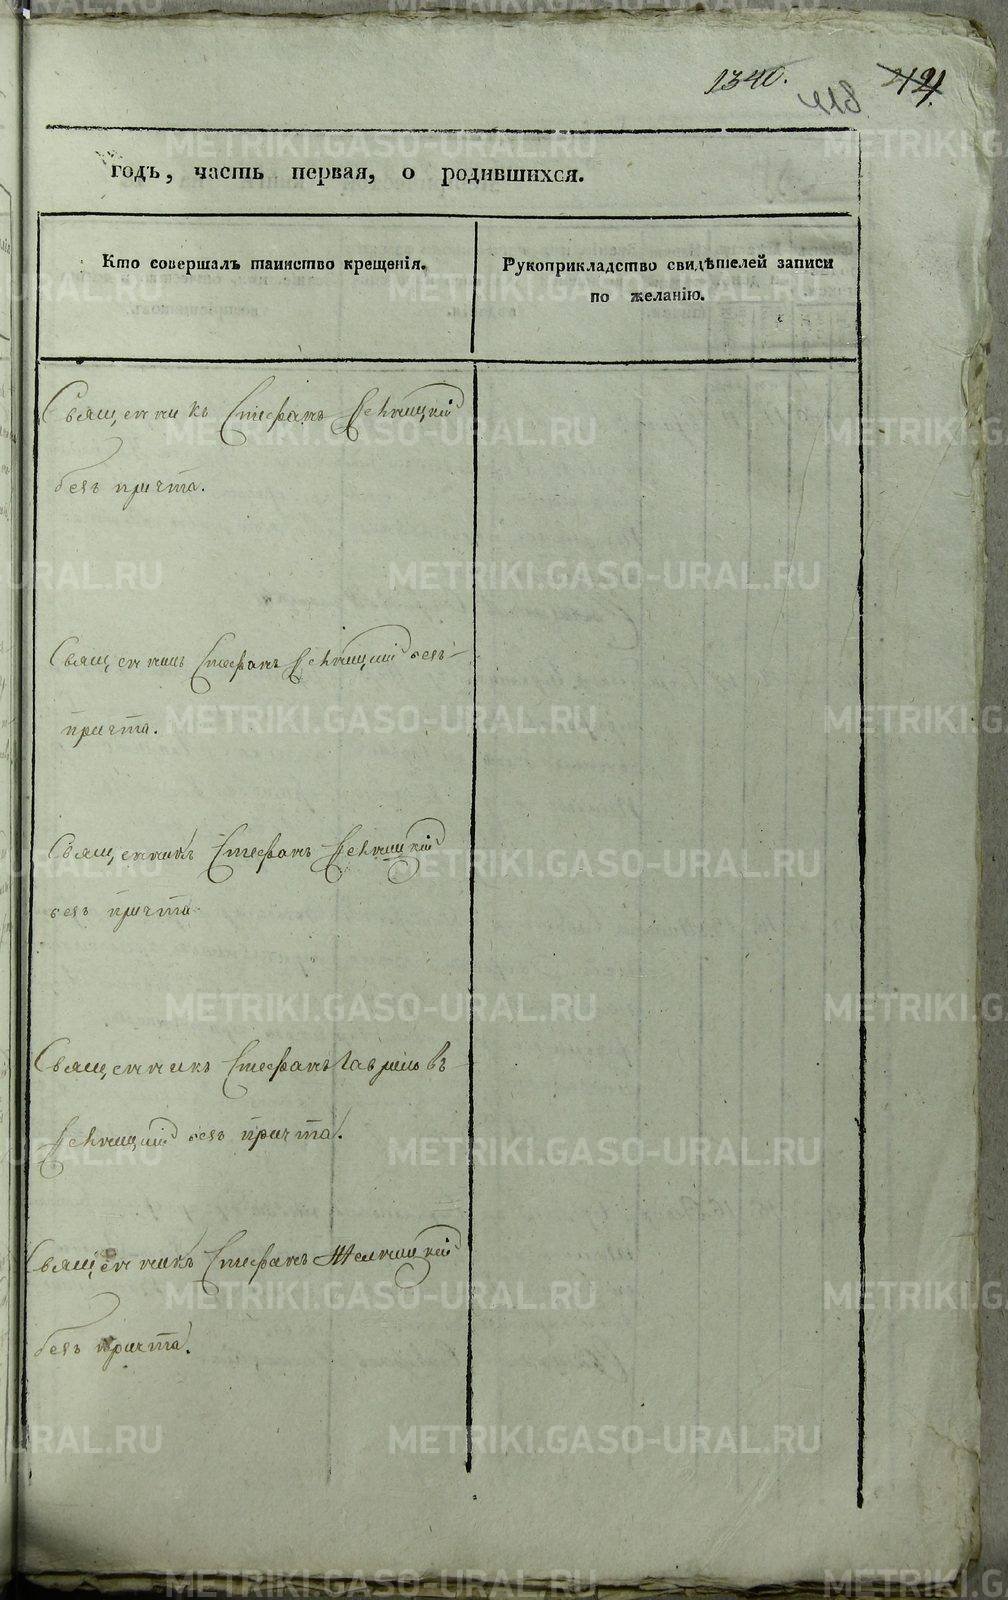 1340. 44.
годъ, часть первая, о родившихся.
Кто совершалъ таинство крещенія.
Рукоприкладство свидѣтелей записи
по желанію.
Священникъ Стефанъ
безъ причта.
Священникъ Стефанъ безъ
причта.
Священникъ Стефанъ
безъ причта
Священникъ Стефанъ Гавриловъ
безъ причта.
Священникъ Стефанъ
безъ причта.
METRIKI.GASO-URAL.RU